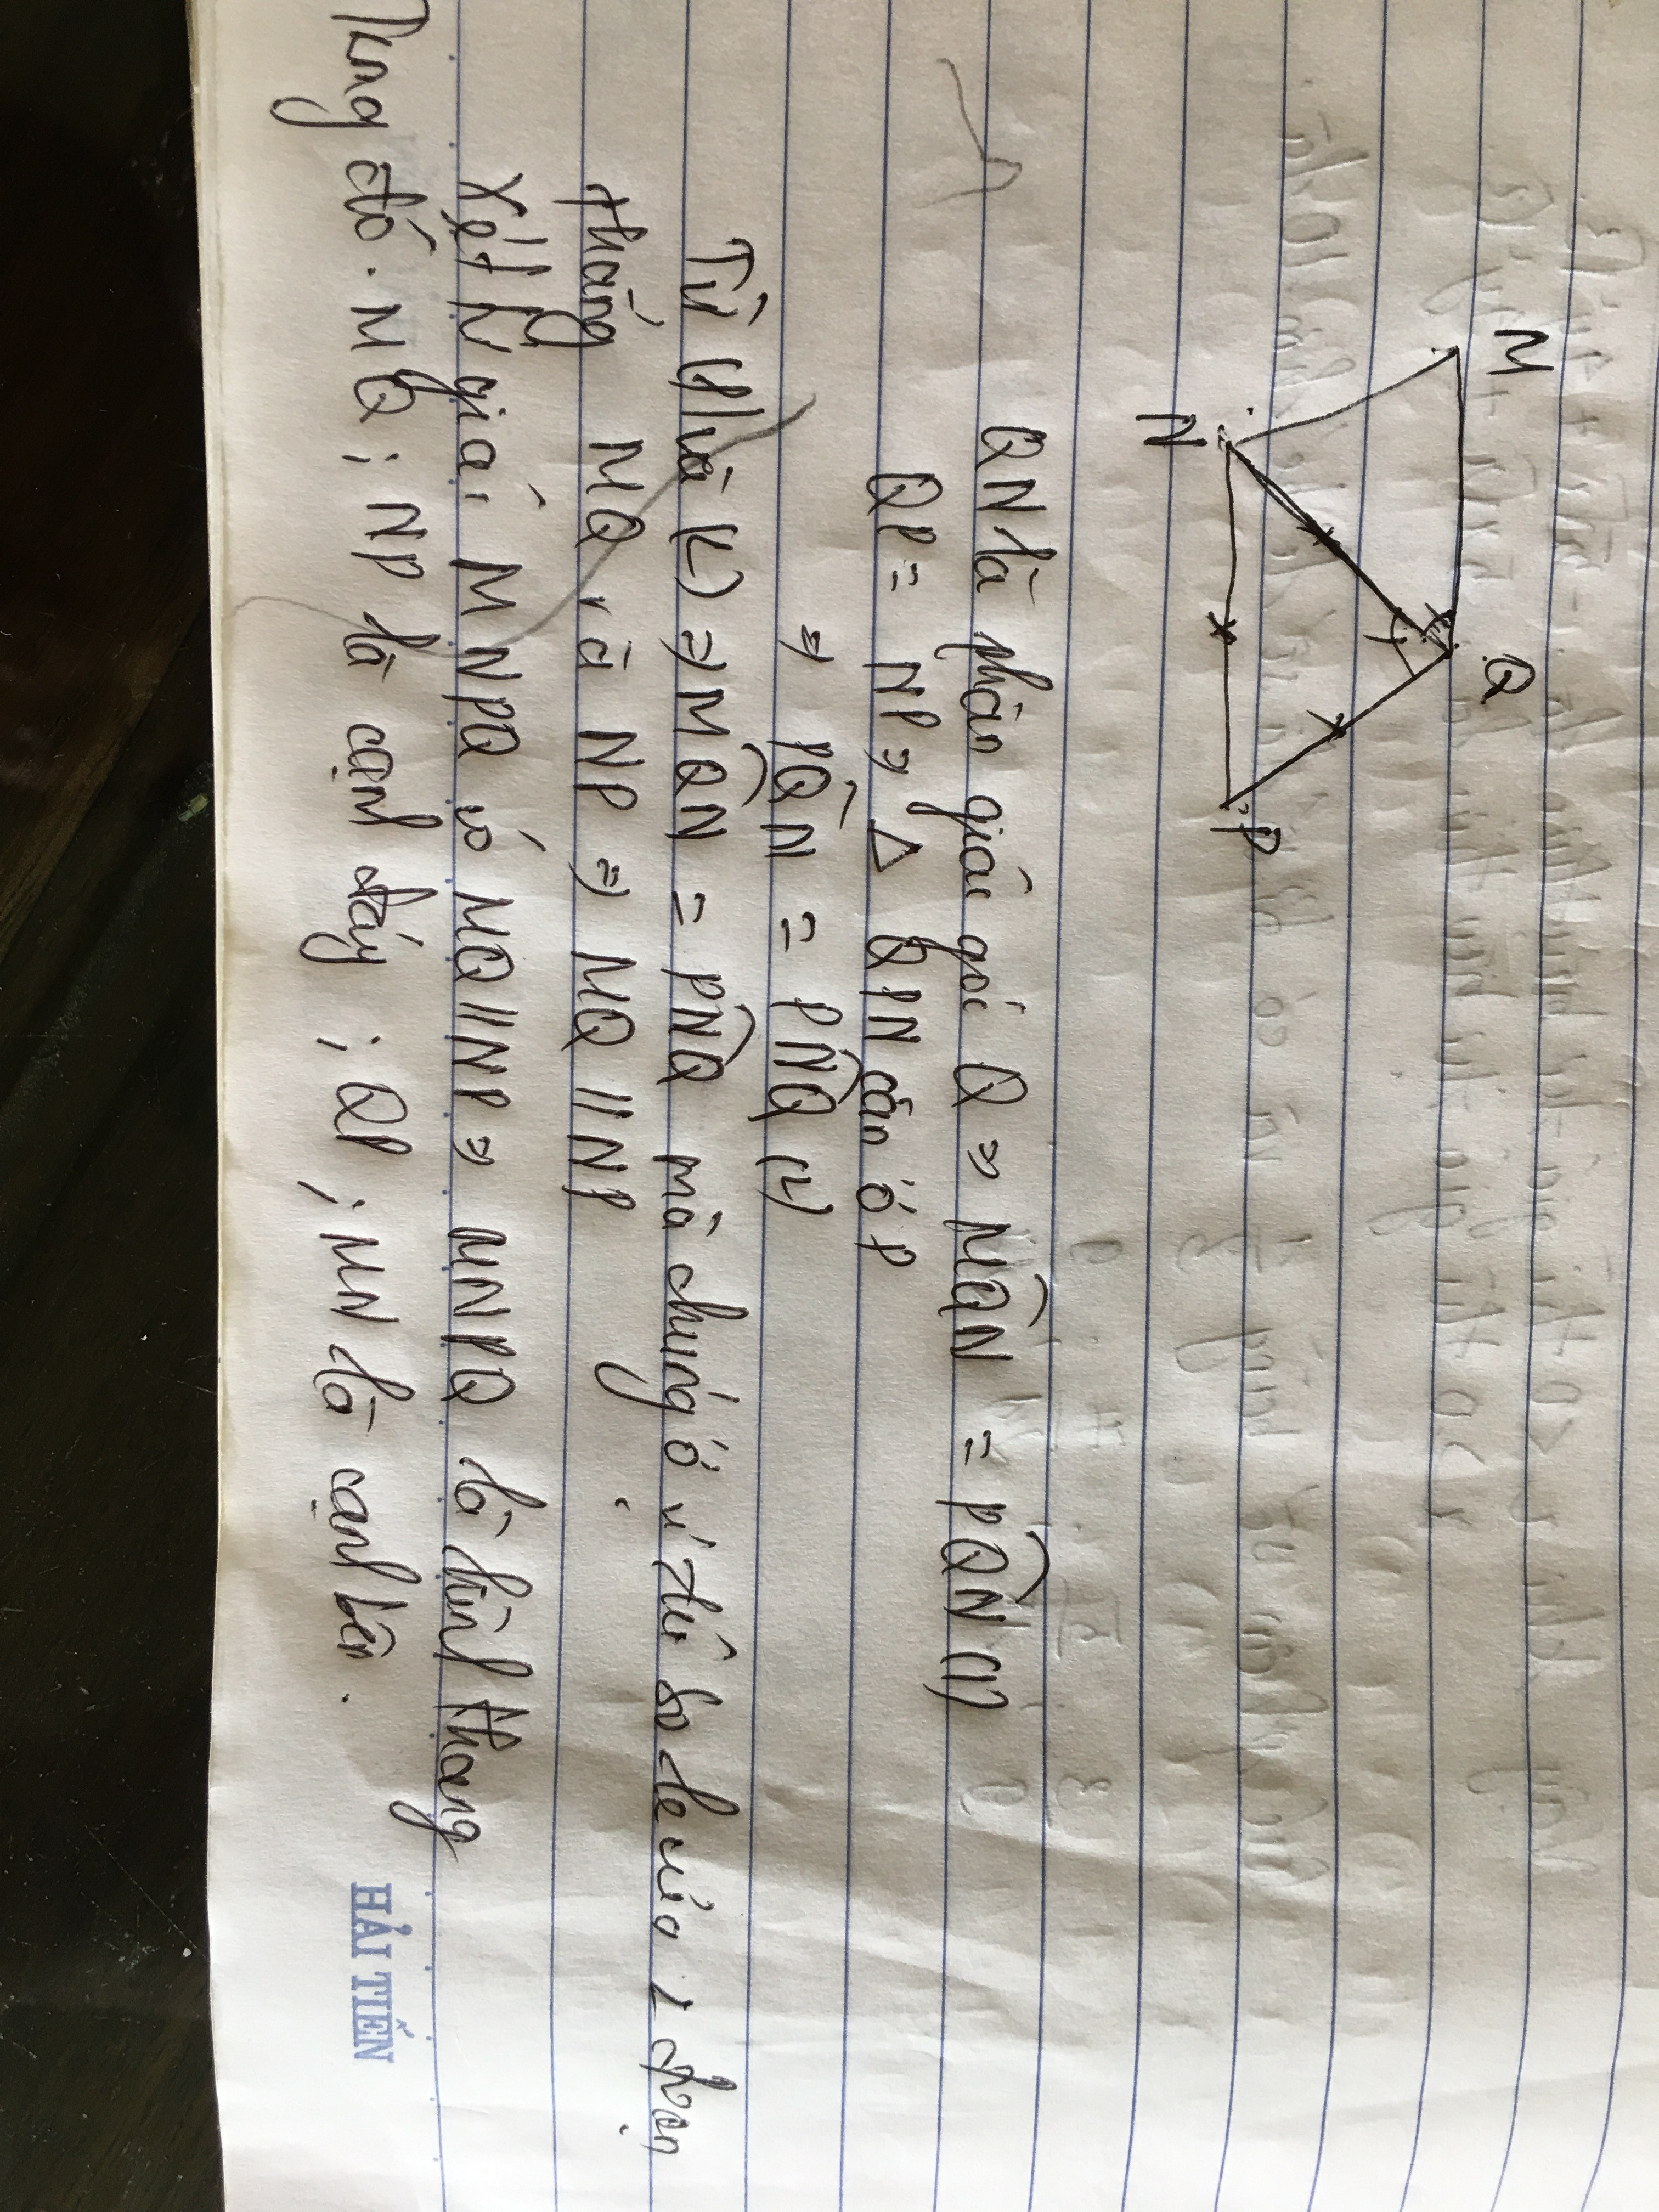 M Q
N P
QN là phân giác góc Q ⇒ MQN = PQN (1)
QP = NP ⇒ Δ QPN cân ở P
⇒ PQN = PNQ (2)
Từ (1) và (2) ⇒ MQN = PNQ mà chúng ở vị thế so le của 2 đoạn
thẳng MQ và NP ⇒ MQ // NP
Xét tứ giác MNPQ có MQ // NP ⇒ MNPQ là hình thang
Trong đó. MQ ; NP là cạnh đáy ; QP ; MN là cạnh bên.
HẢI TIẾN